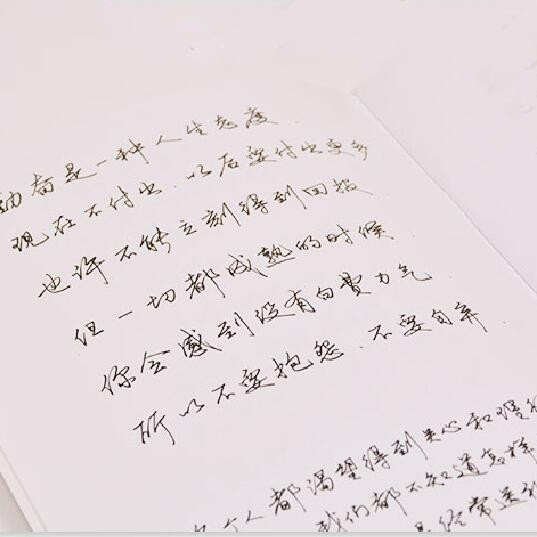 看是一种人生态度
现在不付出.以后要付出更多
也许不能立刻得到回报
但一切都成熟的时候
你会感到没有白费力气
所以不要抱怨.不要自弃
个人都渴望得到关心和理
我们都不知道怎样
经常送